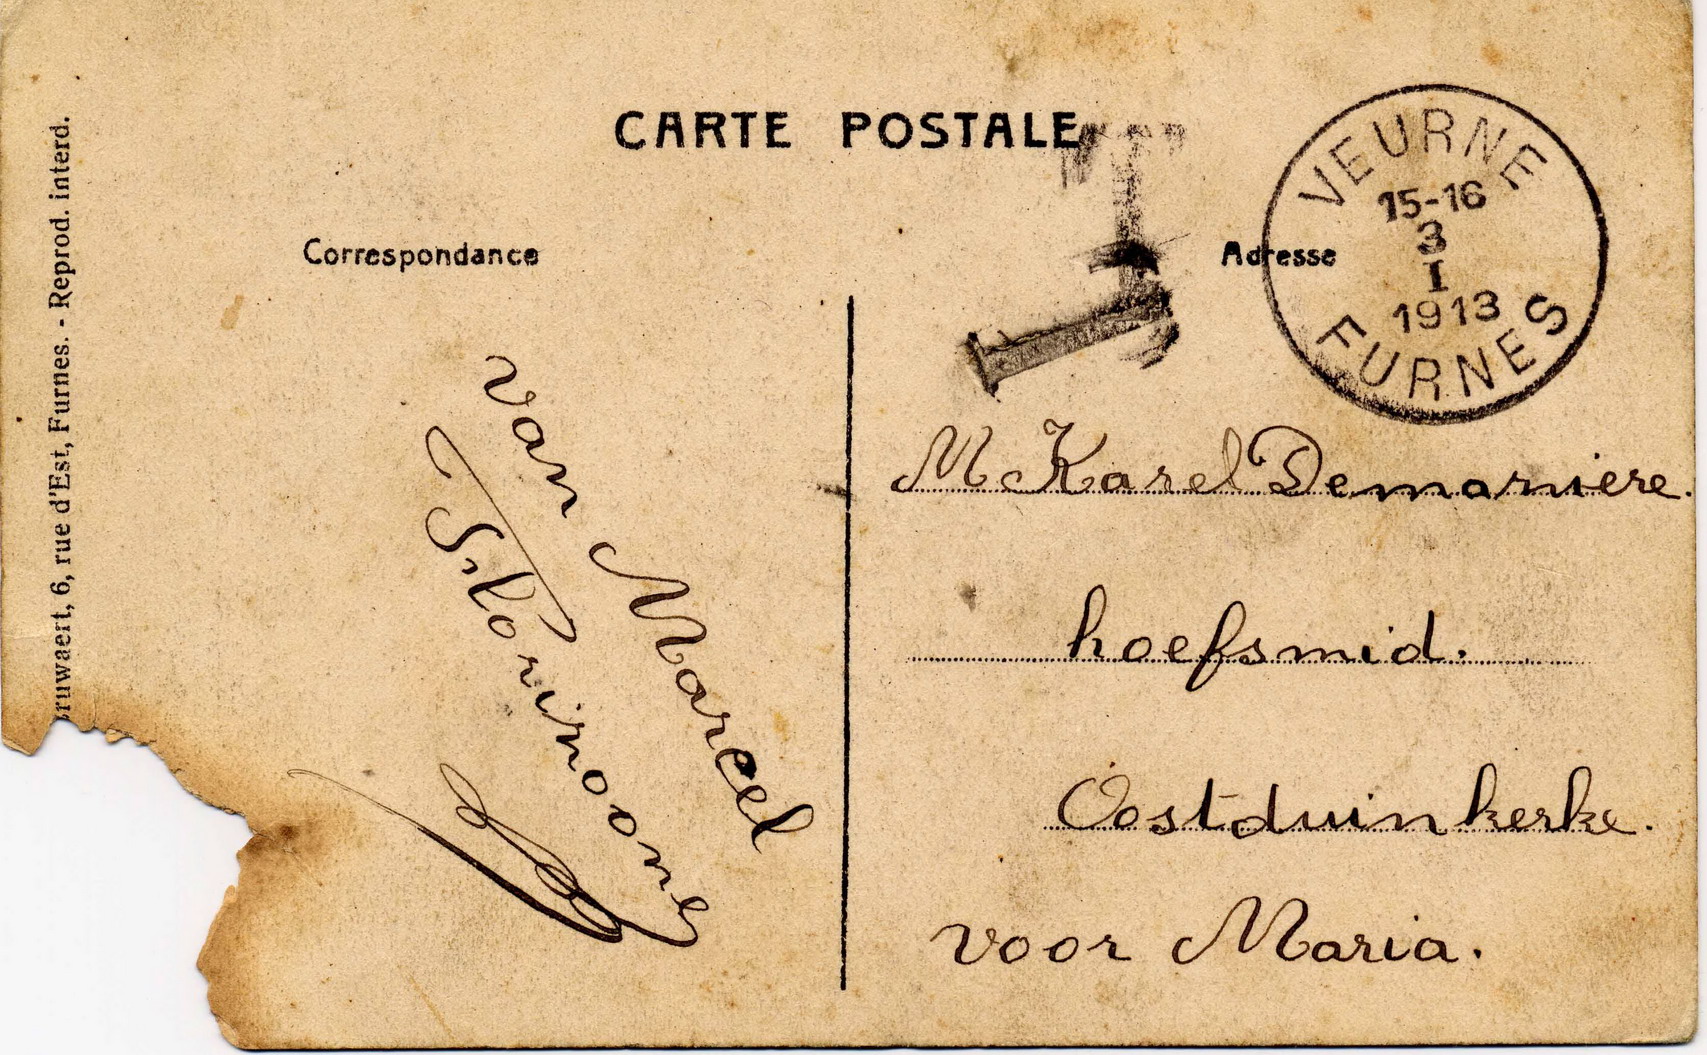 CARTE POSTALE
Correspondance
Adresse
T
VEURNE
15-16
3
I
1913
FURNES
ruwaert, 6, rue d'Est, Furnes. - Reprod. interd.
van Marcel
Florimoone
M Karel Demarniere.
hoefsmid.
Oostduinkerke.
voor Maria.